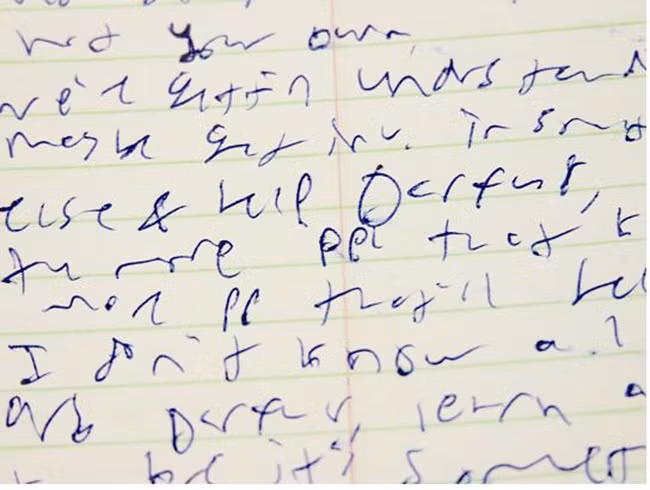 not your own
gettin understand
maybe get inv. in smt
else & help Darfur,
the more ppl that k
more pp they'll hel
I don't know a.l
Darfur, learn a
bc it's s